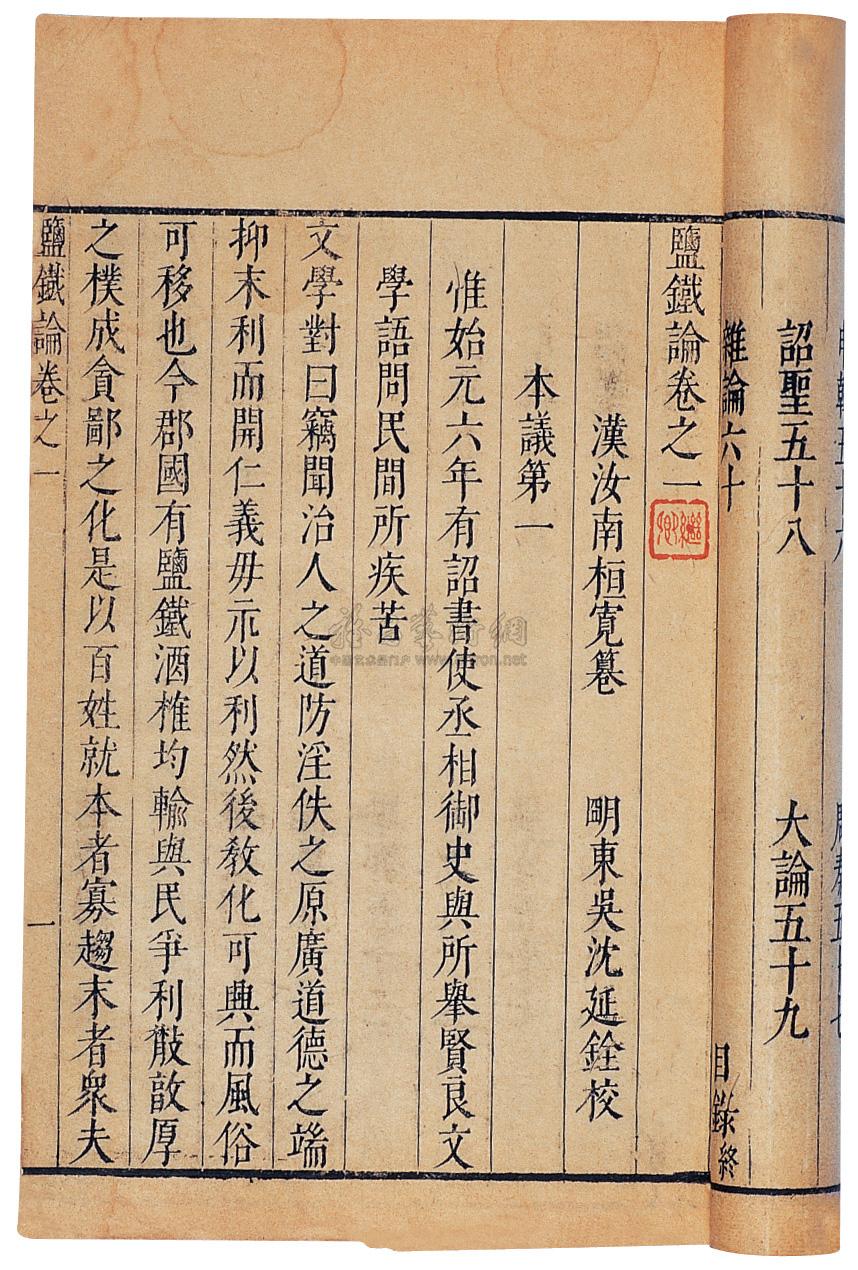 詔聖五十八 大論五十九
雜論六十
目錄終
鹽鐵論卷之一
漢汝南桓寬篹 明東吳沈延銓校
本議第一
惟始元六年有詔書使丞相御史與所舉賢良文
學語問民間所疾苦
文學對曰竊聞治人之道防淫佚之原廣道德之端
抑末利而開仁義毋示以利然後教化可興而風俗
可移也今郡國有鹽鐵酒榷均輸與民爭利散敦厚
之樸成貪鄙之化是以百姓就本者寡趨末者衆夫
鹽鐵論卷之一 一